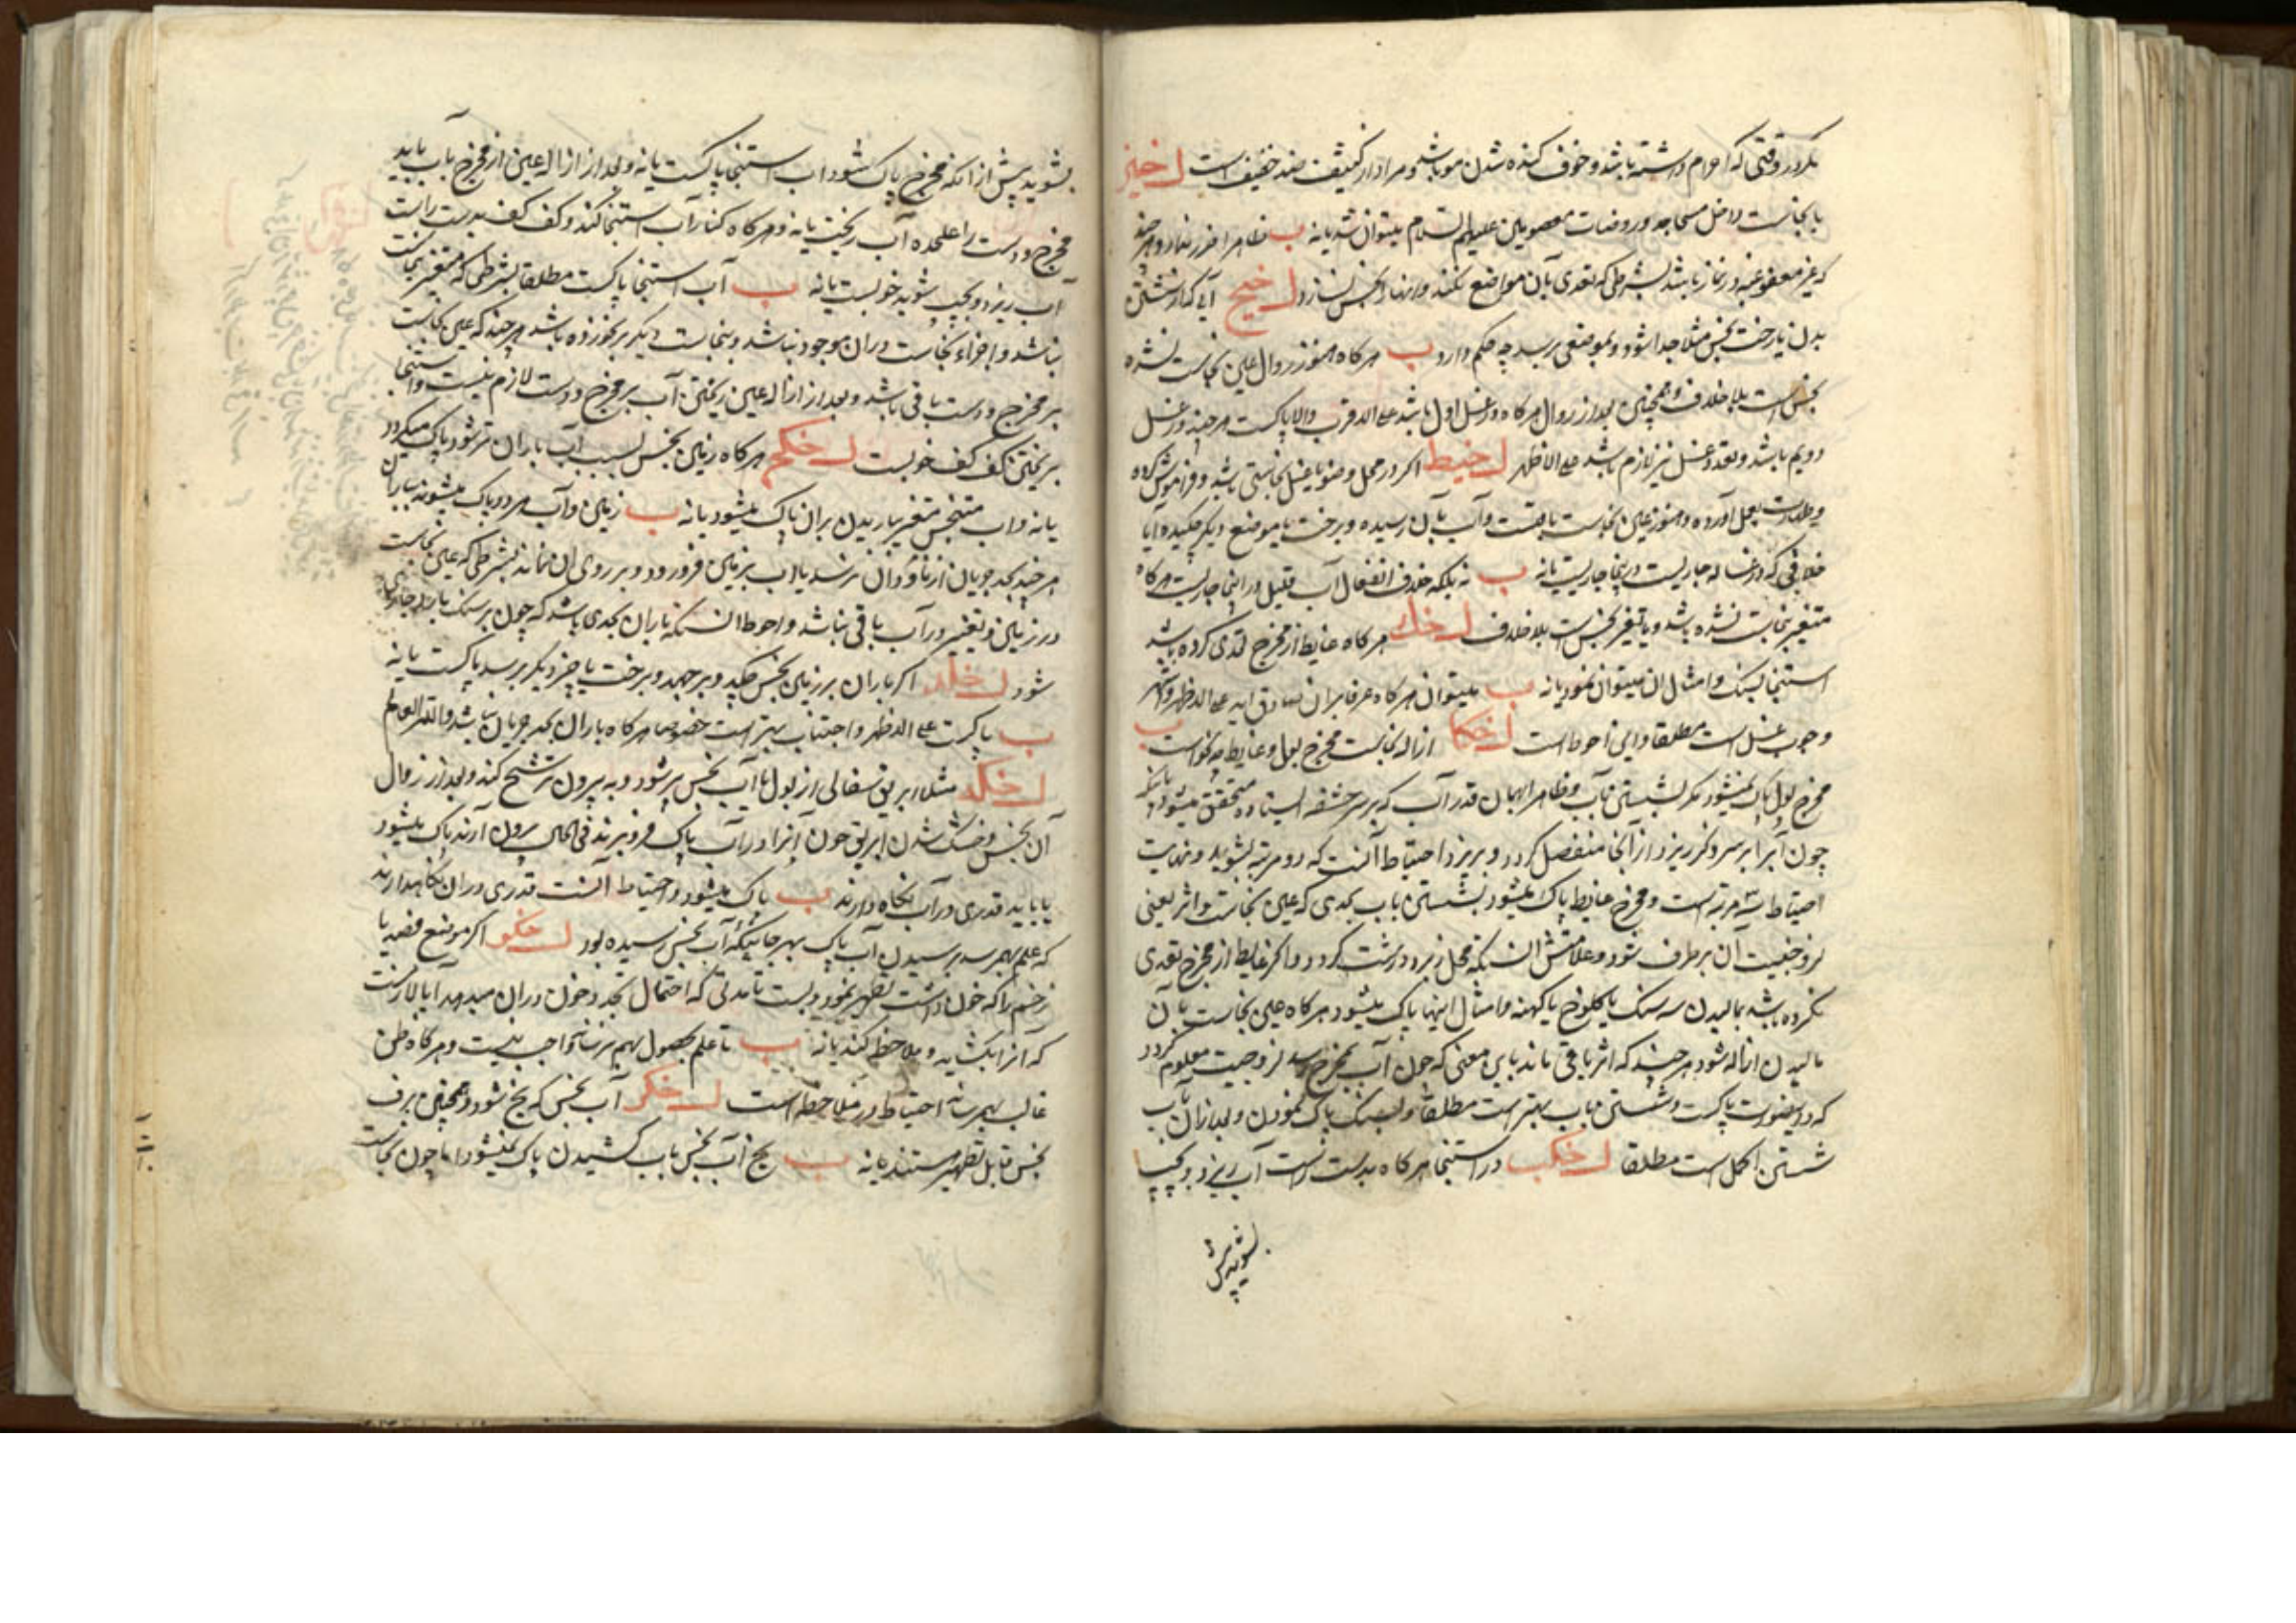 مگر در وقتی که احرام داشته باشد و خوف کنده شدن مو باشد و مراد از کثیف ضد خفیف است ل خیز
با نجاست داخل مساجد و روضات معصومین علیهم السلام میتوان شد یا نه ب ظاهرا ضرر ندارد هر چند
که غیر معفو عنه در نماز باشد بشرطی که تعدی بآن مواضع نکند و آنها را نجس نسازد ل خیح آبی که از شستن
بدن یا رخت نجس مثلا جدا شود و بموضعی برسد چه حکم دارد ب هر کاه هنوز زوال عین نجاست نشده
نجس است بلا خلاف و همچنین بعد از زوال هر کاه در غسل اول باشد علی الاقرب والا پاکست هر چند در غسل
دویم باشد و تعدد غسل نیز لازم باشد علی الاظهر ل خیط اکر در محل وضو یا غسل نجاستی باشد و فراموش کرده
و طهارت بعمل آورده و هنوز عین نجاست باقیست و آب بآن رسیده و برخت یا موضع دیکر چکیده آیا
خلافی که در غساله جاریست در اینجا جاریست یا نه ب نه بلکه خلاف انفعال آب قلیل در اینجا جاریست هر کاه
متغیر بنجاست نشده باشد و با تغیر نجس است بلا خلاف ل خک هر کاه غایط از مخرج تعدی کرده باشد
استنجا بسنک و امثال ان میتوان نمود یا نه ب میتوان هر کاه عرفا بران صادق اید علی الاظهر و اشهر
وجوب غسل است مطلقا و این احوط است ل خکا ازاله نجاست مخرج بول و غایط چه نحو است ب
مخرج بول پاک نمیشود مکر بشستن بآب و ظاهرا بهمان قدر آب که بر سر حشفه ایستاده متحقق میشود بانکه
چون آبرا بر سر ذکر ریزد از آنجا منفصل کردد و بریزد احتیاط آنست که دو مرتبه بشوید و نهایت
احتیاط سه مرتبه است و مخرج غایط پاک میشود بشستن باب بحدی که عین نجاست و اثر یعنی
لزوجیت آن بر طرف شود و علامتش آنست که محل زبر و درشت کردد و اکر غایط از مخرج تعدی
نکرده باشد بمالیدن سه سنک یا کلوخ یا کهنه و امثال اینها پاک میشود هر کاه عین نجاست بآن
مالیدن ازاله شود هر چند که اثر باقی ماند باین معنی که چون آب بمخرج رسد لزوجیت معلوم کردد
که در اینصورت پاکست و شستن باب بهتر است مطلقا و بسنک پاک نمودن و بعد ازان بآب
شستن اکمل است مطلقا ل خکب در استنجا هر کاه بدست راست آب ریزد و بچپ
بشوید پیش
بشوید پیش از انکه مخرج پاک شود اب استنجا پاکست یا نه و بعد از ازاله عین از مخرج بآب باید
مخرج و دست را علیحده آب ریخت یا نه و هر کاه کنار آب استنجا کند و کف کف بدست راست
آب ریزد و بچپ شوید خوبست یا نه ب آب استنجا پاکست مطلقا بشرطی که متغیر بنجاست
نباشد و اجزاء نجاست دران موجود نباشد و بنجاست دیکر بر نخورده باشد هر چند که عین نجاست
بر مخرج و دست باقی باشد و بعد از ازاله عین ریختن آب بر مخرج و دست لازم نیست و استنجا
بریختن کف کف خوبست ل خکج هر کاه زمین نجس بسبب آب باران تر شود پاک میکردد
یا نه و اب متنجس متغیر بباریدن بران پاک میشود یا نه ب زمین و آب هر دو پاک میشوند بباران
هر چند بحد جریان از ناودان نرسد یا اب بزمین فرو رود و بر روی ان نماند بشرطی که عین نجاست
در زمین و تغییر در آب باقی نباشد و احوط انست که باران بحدی باشد که چون بر سنک بارد جاری
شود ل خکد اکر باران بر زمین نجس چکید و بر جهد و برخت یا چیز دیکر برسد پاکست یا نه
ب پاکست علی الاظهر و اجتناب بهتر است خصوصا هر کاه باران بحد جریان نباشد والله العالم
ل خکه مثلا ابریق سفالی از بول یا آب نجس پر شود و به بیرون ترشح کند و بعد از زوال
آن نجس و خشک شدن ابریق چون آنرا در آب پاک فرو برند فی الحال بیرون آرند پاک میشود
یا باید قدری در آب نکاه دارند ب پاک میشود و احتیاط آنست قدری دران نکاهدارند
که علم بهم رسد برسیدن آب پاک بهر جائیکه آب نجس رسیده بود ل خکو اکر موضع فصد یا
زخم را که خون داشت تطهیر نمود و بست تا مدتی که احتمال تجدد خون دران میدهد آیا لازمست
که آنرا بکشاید و ملاحظه کند یا نه ب تا علم بحصول بهم نرساند واجب نیست و هر کاه ظن
غالب بهم رساند احتیاط در ملاحظه است ل خکز آب نجس که یخ شود و همچنین برف
نجس قابل تطهیر هستند یا نه ب یخ آب نجس باب کشیدن پاک نمیشود اما چون نجاست